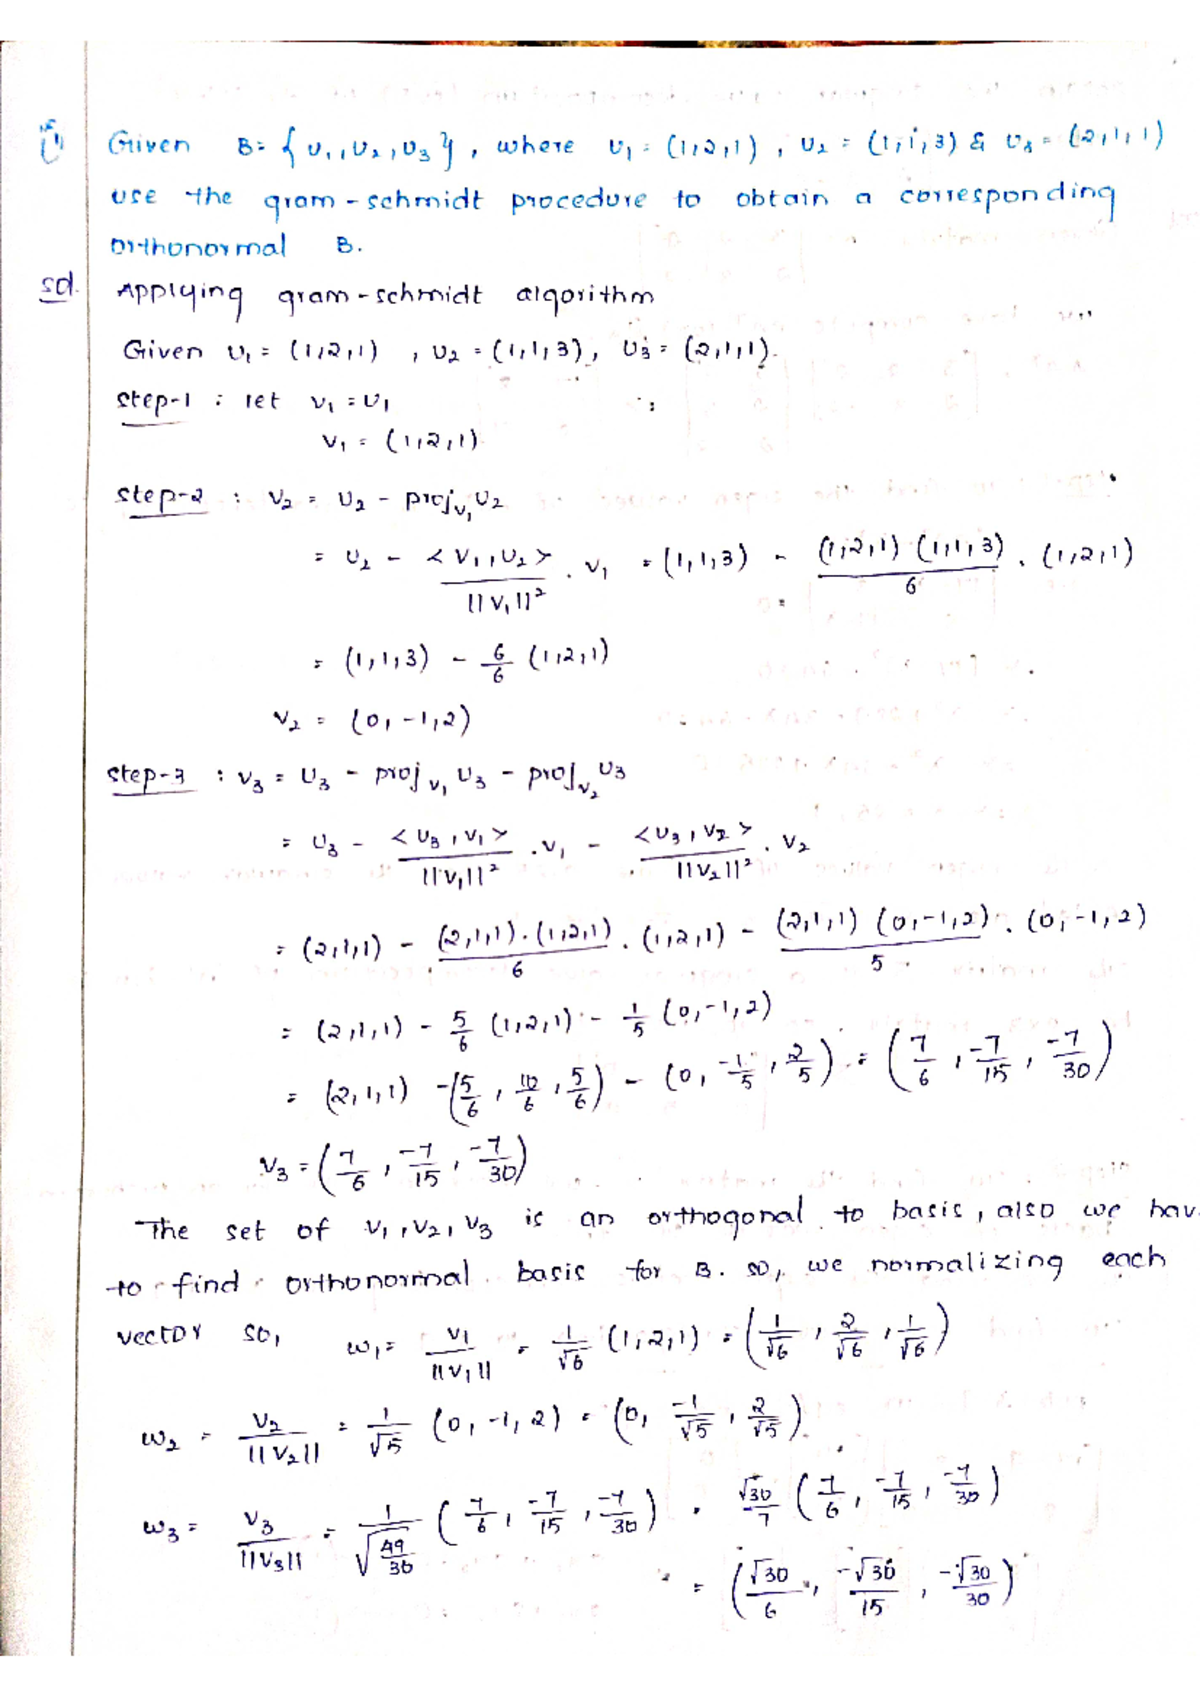 Given B = { U₁, U₂, U₃ }, where U₁ = (1,2,1), U₂ = (1,1,3) & U₃ = (2,1,1)
use the gram-schmidt procedure to obtain a corresponding
orthonormal B.
Sol. Applying gram-schmidt algorithm
Given U₁ = (1,2,1), U₂ = (1,1,3), U₃ = (2,1,1).
Step-1 : let V₁ = U₁
V₁ = (1,2,1)
Step-2 : V₂ = U₂ - proj_v₁ U₂
= U₂ - <V₁,U₂>/||V₁||² . V₁ = (1,1,3) - (1,2,1)·(1,1,3)/6 . (1,2,1)
= (1,1,3) - 6/6 (1,2,1)
V₂ = (0,-1,2)
Step-3 : V₃ = U₃ - proj_v₁ U₃ - proj_v₂ U₃
= U₃ - <U₃,V₁>/||V₁||² . V₁ - <U₃,V₂>/||V₂||² . V₂
= (2,1,1) - (2,1,1)·(1,2,1)/6 . (1,2,1) - (2,1,1)(0,-1,2)/5 . (0,-1,2)
= (2,1,1) - 5/6 (1,2,1) - 1/5 (0,-1,2)
= (2,1,1) - (5/6, 10/6, 5/6) - (0, -1/5, 2/5) = (7/6, -7/15, -7/30)
V₃ = (7/6, -7/15, -7/30)
The set of V₁, V₂, V₃ is an orthogonal to basis, also we hav
to find orthonormal basis for B. so, we normalizing each
vector so, w₁ = V₁/||V₁|| = 1/√6 (1,2,1) = (1/√6, 2/√6, 1/√6)
w₂ = V₂/||V₂|| = 1/√5 (0,-1,2) = (0, -1/√5, 2/√5)
w₃ = V₃/||V₃|| = 1/√(49/30) (7/6, -7/15, -7/30) = √30/7 (7/6, -7/15, -7/30)
= (√30/6, -√30/15, -√30/30)